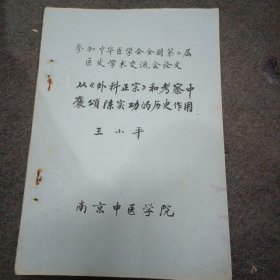 参加中华医学会全国第二届
医史学术交流会论文
从《外科正宗》和考察中
赞颂陈实功的历史作用
王小平
南京中医学院